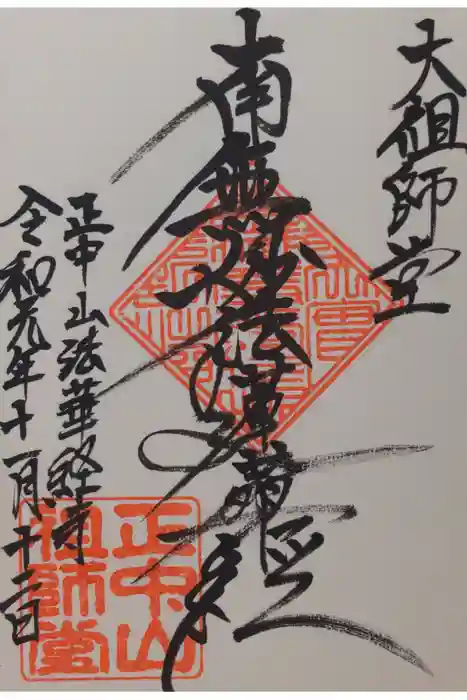 大祖師堂
南無妙法蓮華経
正中山法華経寺
令和元年十一月十二日
正中山
祖師堂